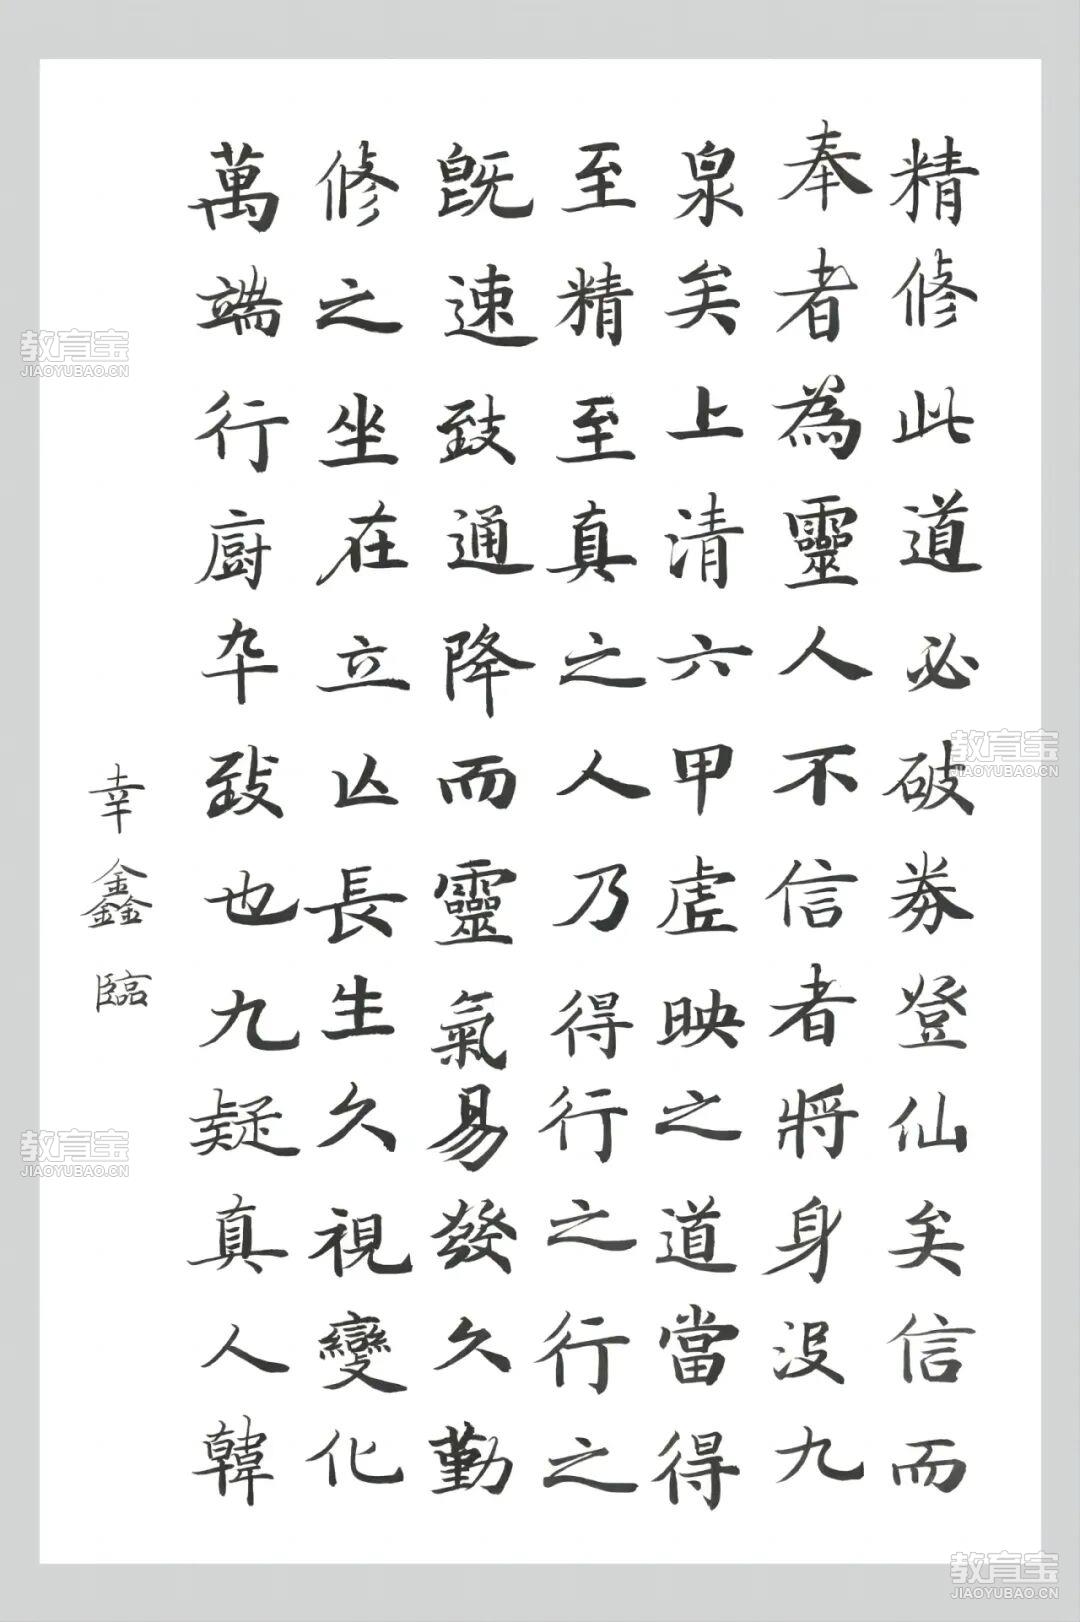 精修此道必破券登仙矣信而
奉者為靈人不信者將身沒九
泉矣上清六甲虛映之道當得
至精至真之人乃得行之行之
既速致通降而靈氣易發久勤
修之坐在立亾長生久視變化
萬端行廚卒致也九疑真人韓
幸鑫臨
教育宝
JIAOYUBAO.CN
教育宝
JIAOYUBAO.CN
教育宝
JIAOYUBAO.CN
教育宝
JIAOYUBAO.CN